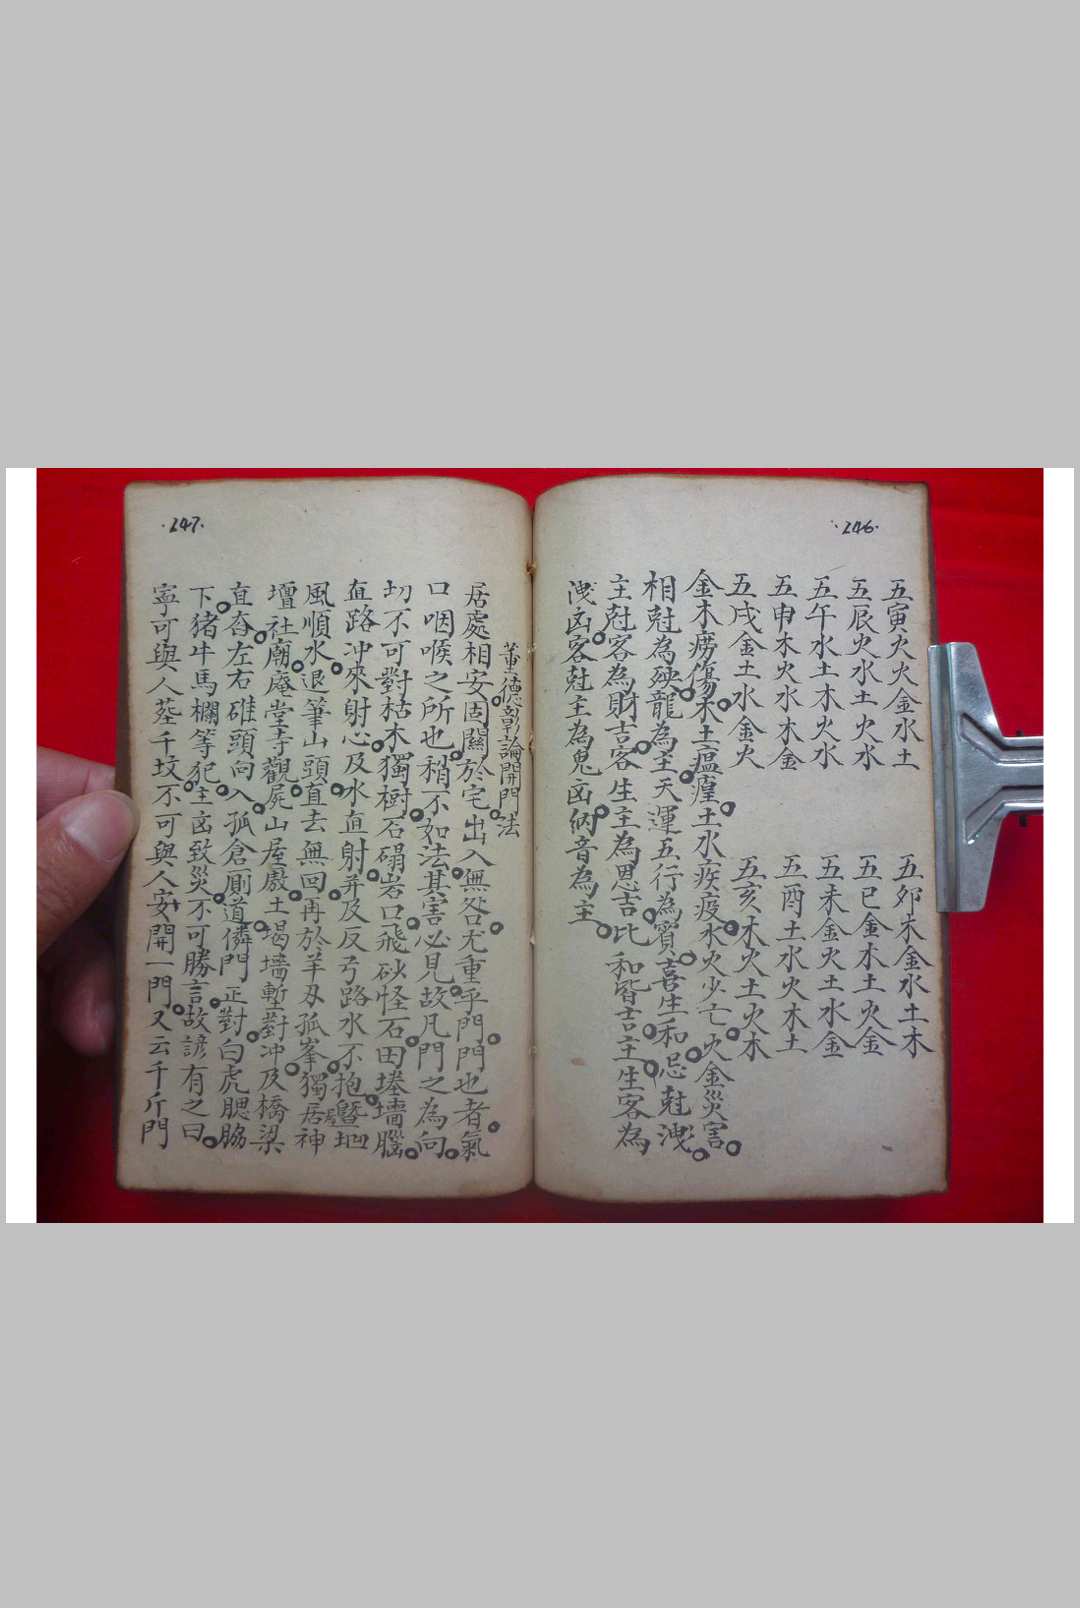 ·246·
五寅火火金水土
五卯木金水土木
五辰火水土火水
五巳金木土火金
五午水土木火水
五未金火土水金
五申木火水木金
五酉土水火木土
五戌金土水金火
五亥木火土火木
金木癆傷木土瘟𤶊土水疾疫水火少亡火金災害
相尅為殃龍為主天運五行為賓喜生和忌尅洩
主尅客為財吉客生主為恩吉比和皆吉主生客為
洩凶客尅主為鬼凶納音為主
·247·
董德彰論開門法
居處相安固關於宅出入無咎尤重乎門門也者氣
口咽喉之所也稍不如法其害必見故凡門之為向
切不可對枯木獨樹石磊岩口飛砂怪石田塝墻腦
直路冲來射心及水直射并及反弓路水不抱
風順水退筆山頭直去無回再於羊刃孤峯獨居神
壇社廟庵堂寺觀屍山屋廒土堨墻塹對冲及橋梁
直吞左右碓頭向入孤倉厠道憐門正對白虎腮脇
下猪牛馬欄等犯主凶致災不可勝言故諺有之曰
寧可與人塟千坟不可與人安開一門又云千斤門